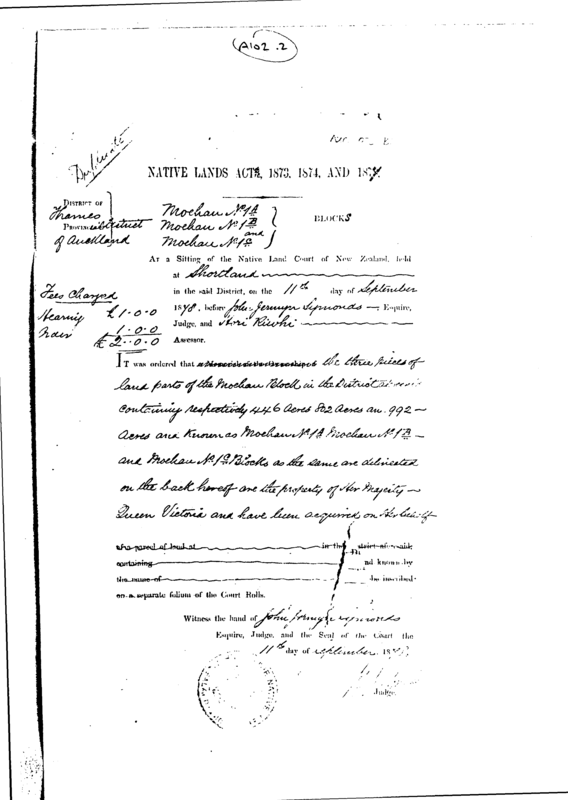 A102.2
Duplicate
NATIVE LANDS ACTS, 1873, 1874, AND 187
DISTRICT OF
Thames
PROVINCIAL District
of Auckland
Moehau No 1A
Moehau No 1B
and
Moehau No 1C
BLOCKS
AT a Sitting of the Native Land Court of New Zealand, held
at Shortland
in the said District, on the 11th day of September
1878, before John Jermyn Symonds — Esquire,
Judge, and Hori Riwhi
Assessor.
Fees Charged
Hearing £1.0.0
Order 1.0.0
£2.0.0
IT was ordered that the three pieces of
land parts of the Moehau Block in the District
containing respectively 446 Acres 802 Acres an. 992 —
Acres and known as Moehau No 1A Moehau No 1B —
and Moehau No 1C Blocks as the same are delineated
on the back hereof are the property of Her Majesty —
Queen Victoria and have been acquired on Her behalf
parcel of land at in the strict aforesaid,
containing nd known by
the name of be inscribed
on a separate folium of the Court Rolls.
Witness the hand of John Jermyn Symonds
Esquire, Judge, and the Seal of the Court the
11th day of September 187
Judge.